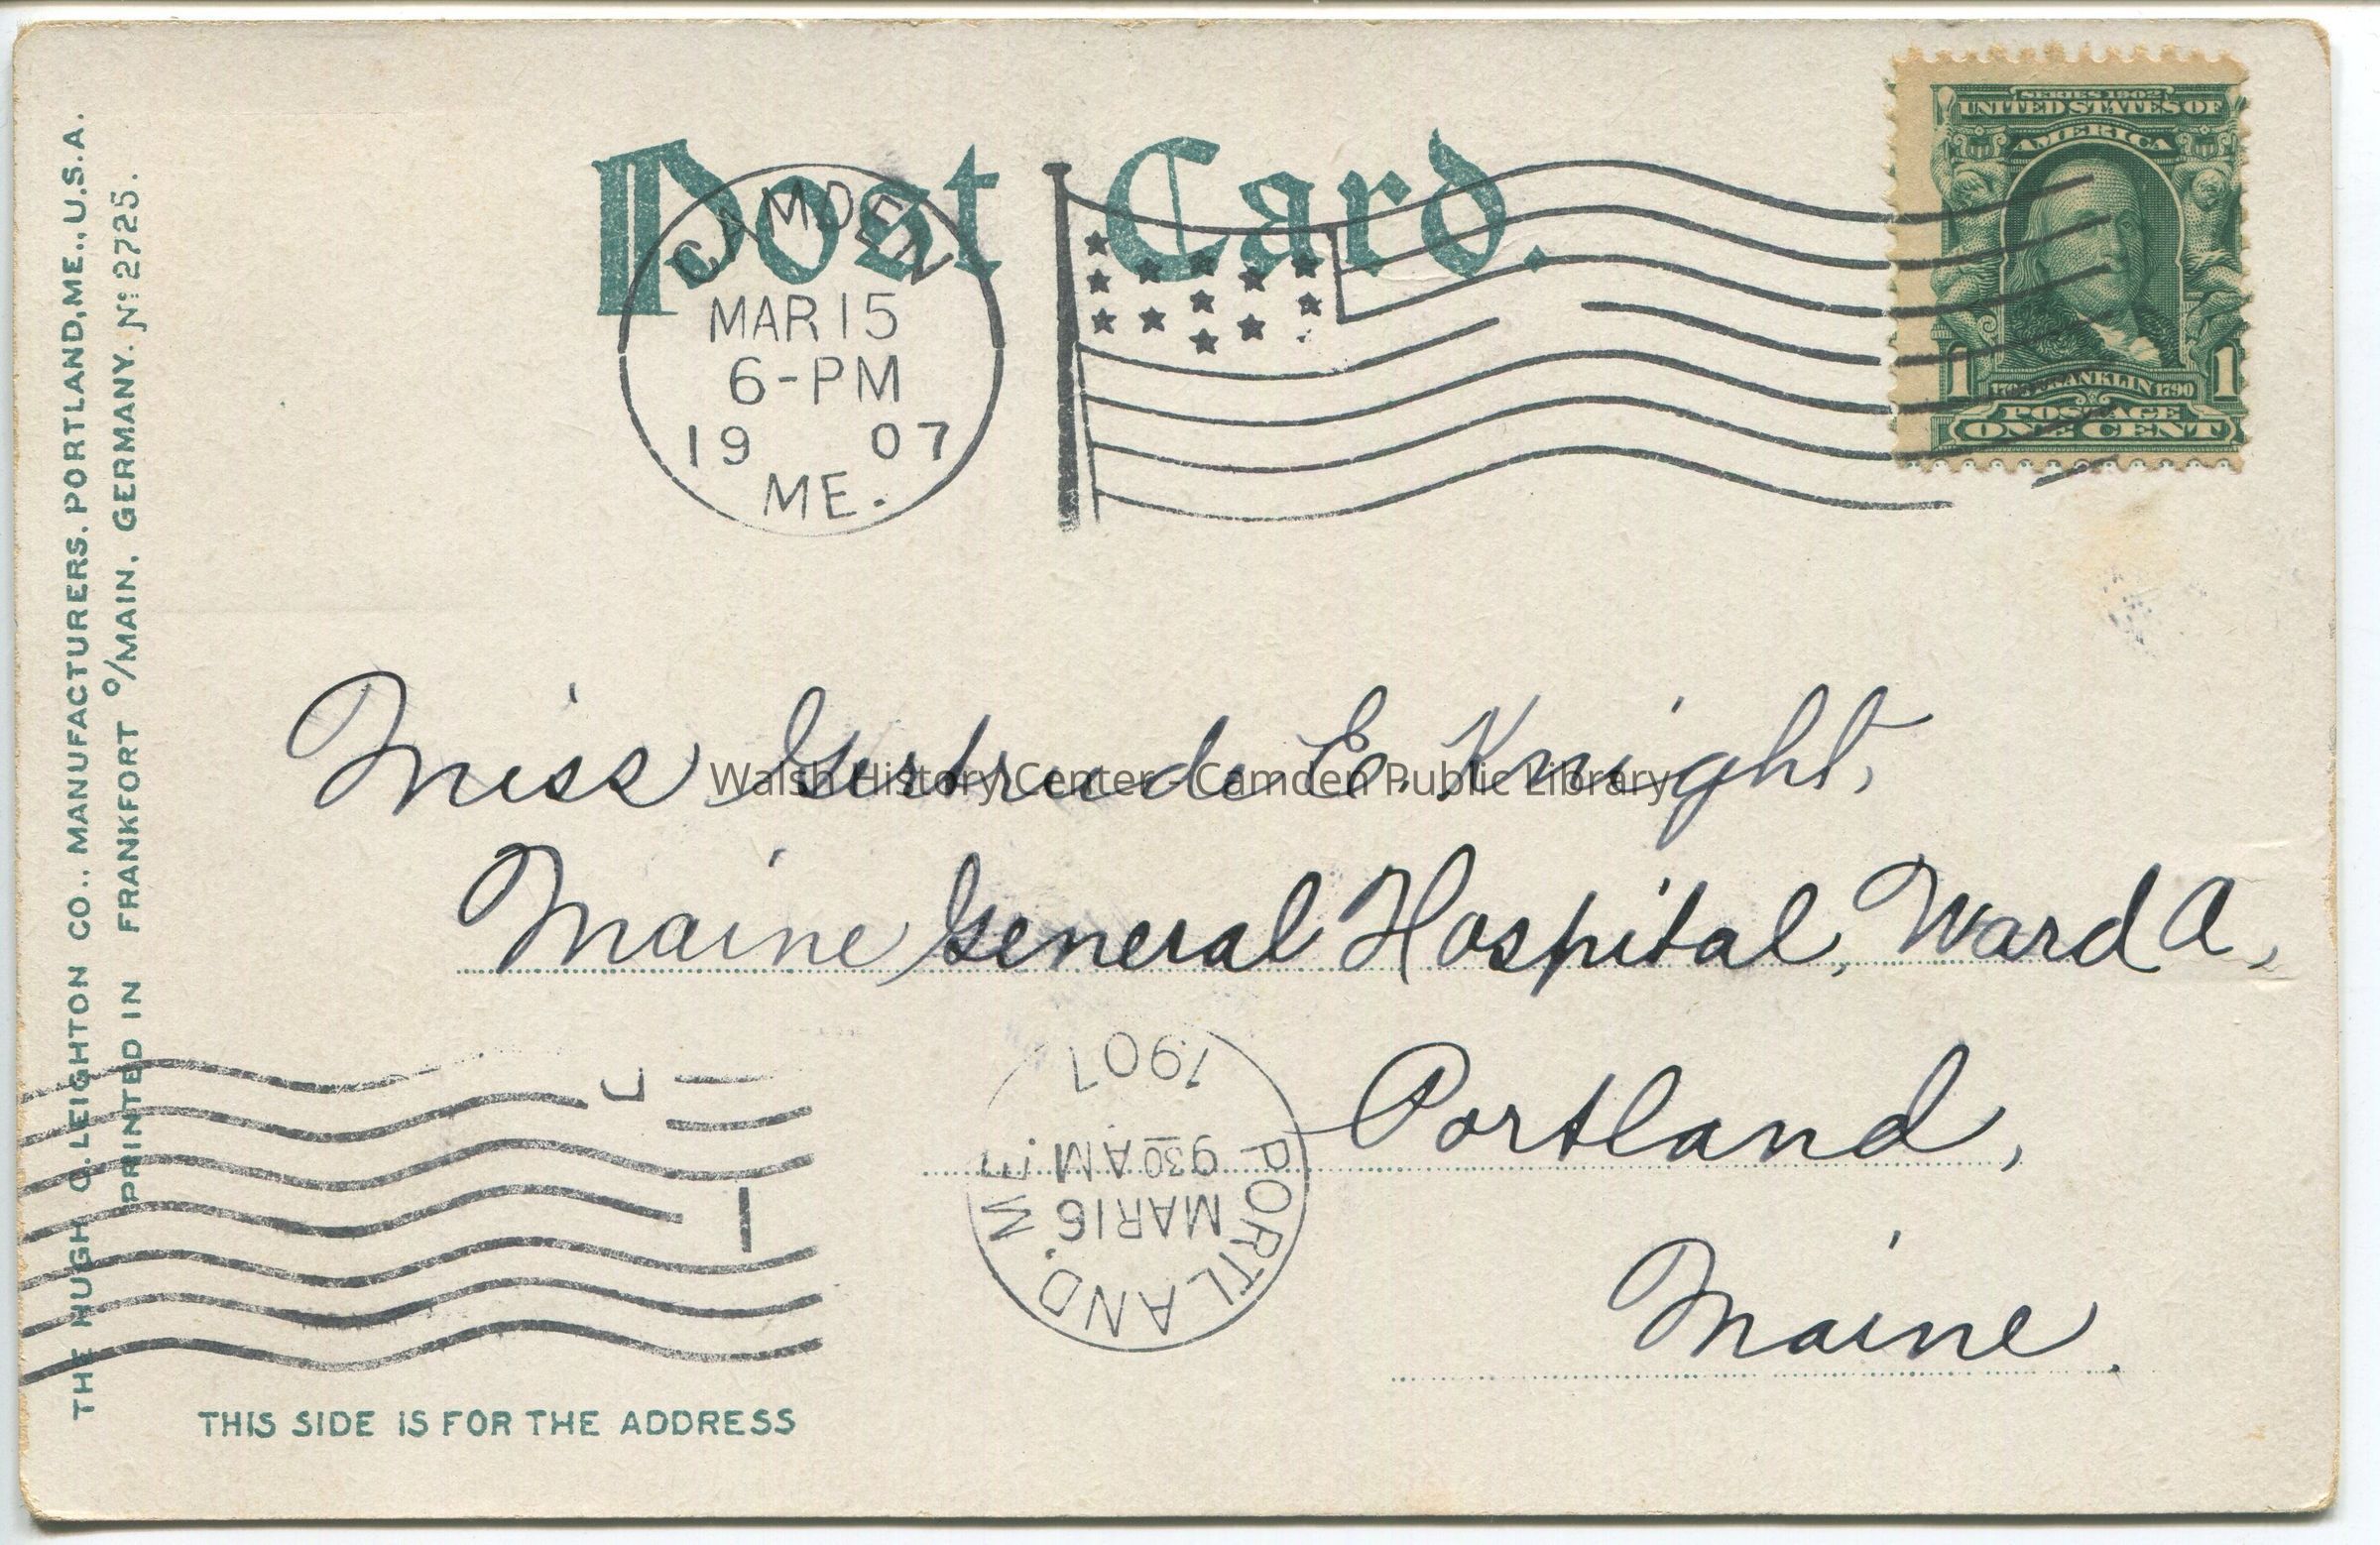 Post Card.
CAMDEN
MAR 15
6-PM
19 07
ME.
SERIES 1902
UNITED STATES OF
AMERICA
1 FRANKLIN 1790 1
POSTAGE
ONE CENT
Miss Gertrude E. Knight,
Walsh History Center - Camden Public Library
Maine General Hospital, Ward A,
Portland,
Maine.
PORTLAND, ME.
MAR 16
930 AM
1907
THE HUGH C. LEIGHTON CO., MANUFACTURERS. PORTLAND, ME., U.S.A.
PRINTED IN FRANKFORT O/MAIN, GERMANY. No 2725.
THIS SIDE IS FOR THE ADDRESS